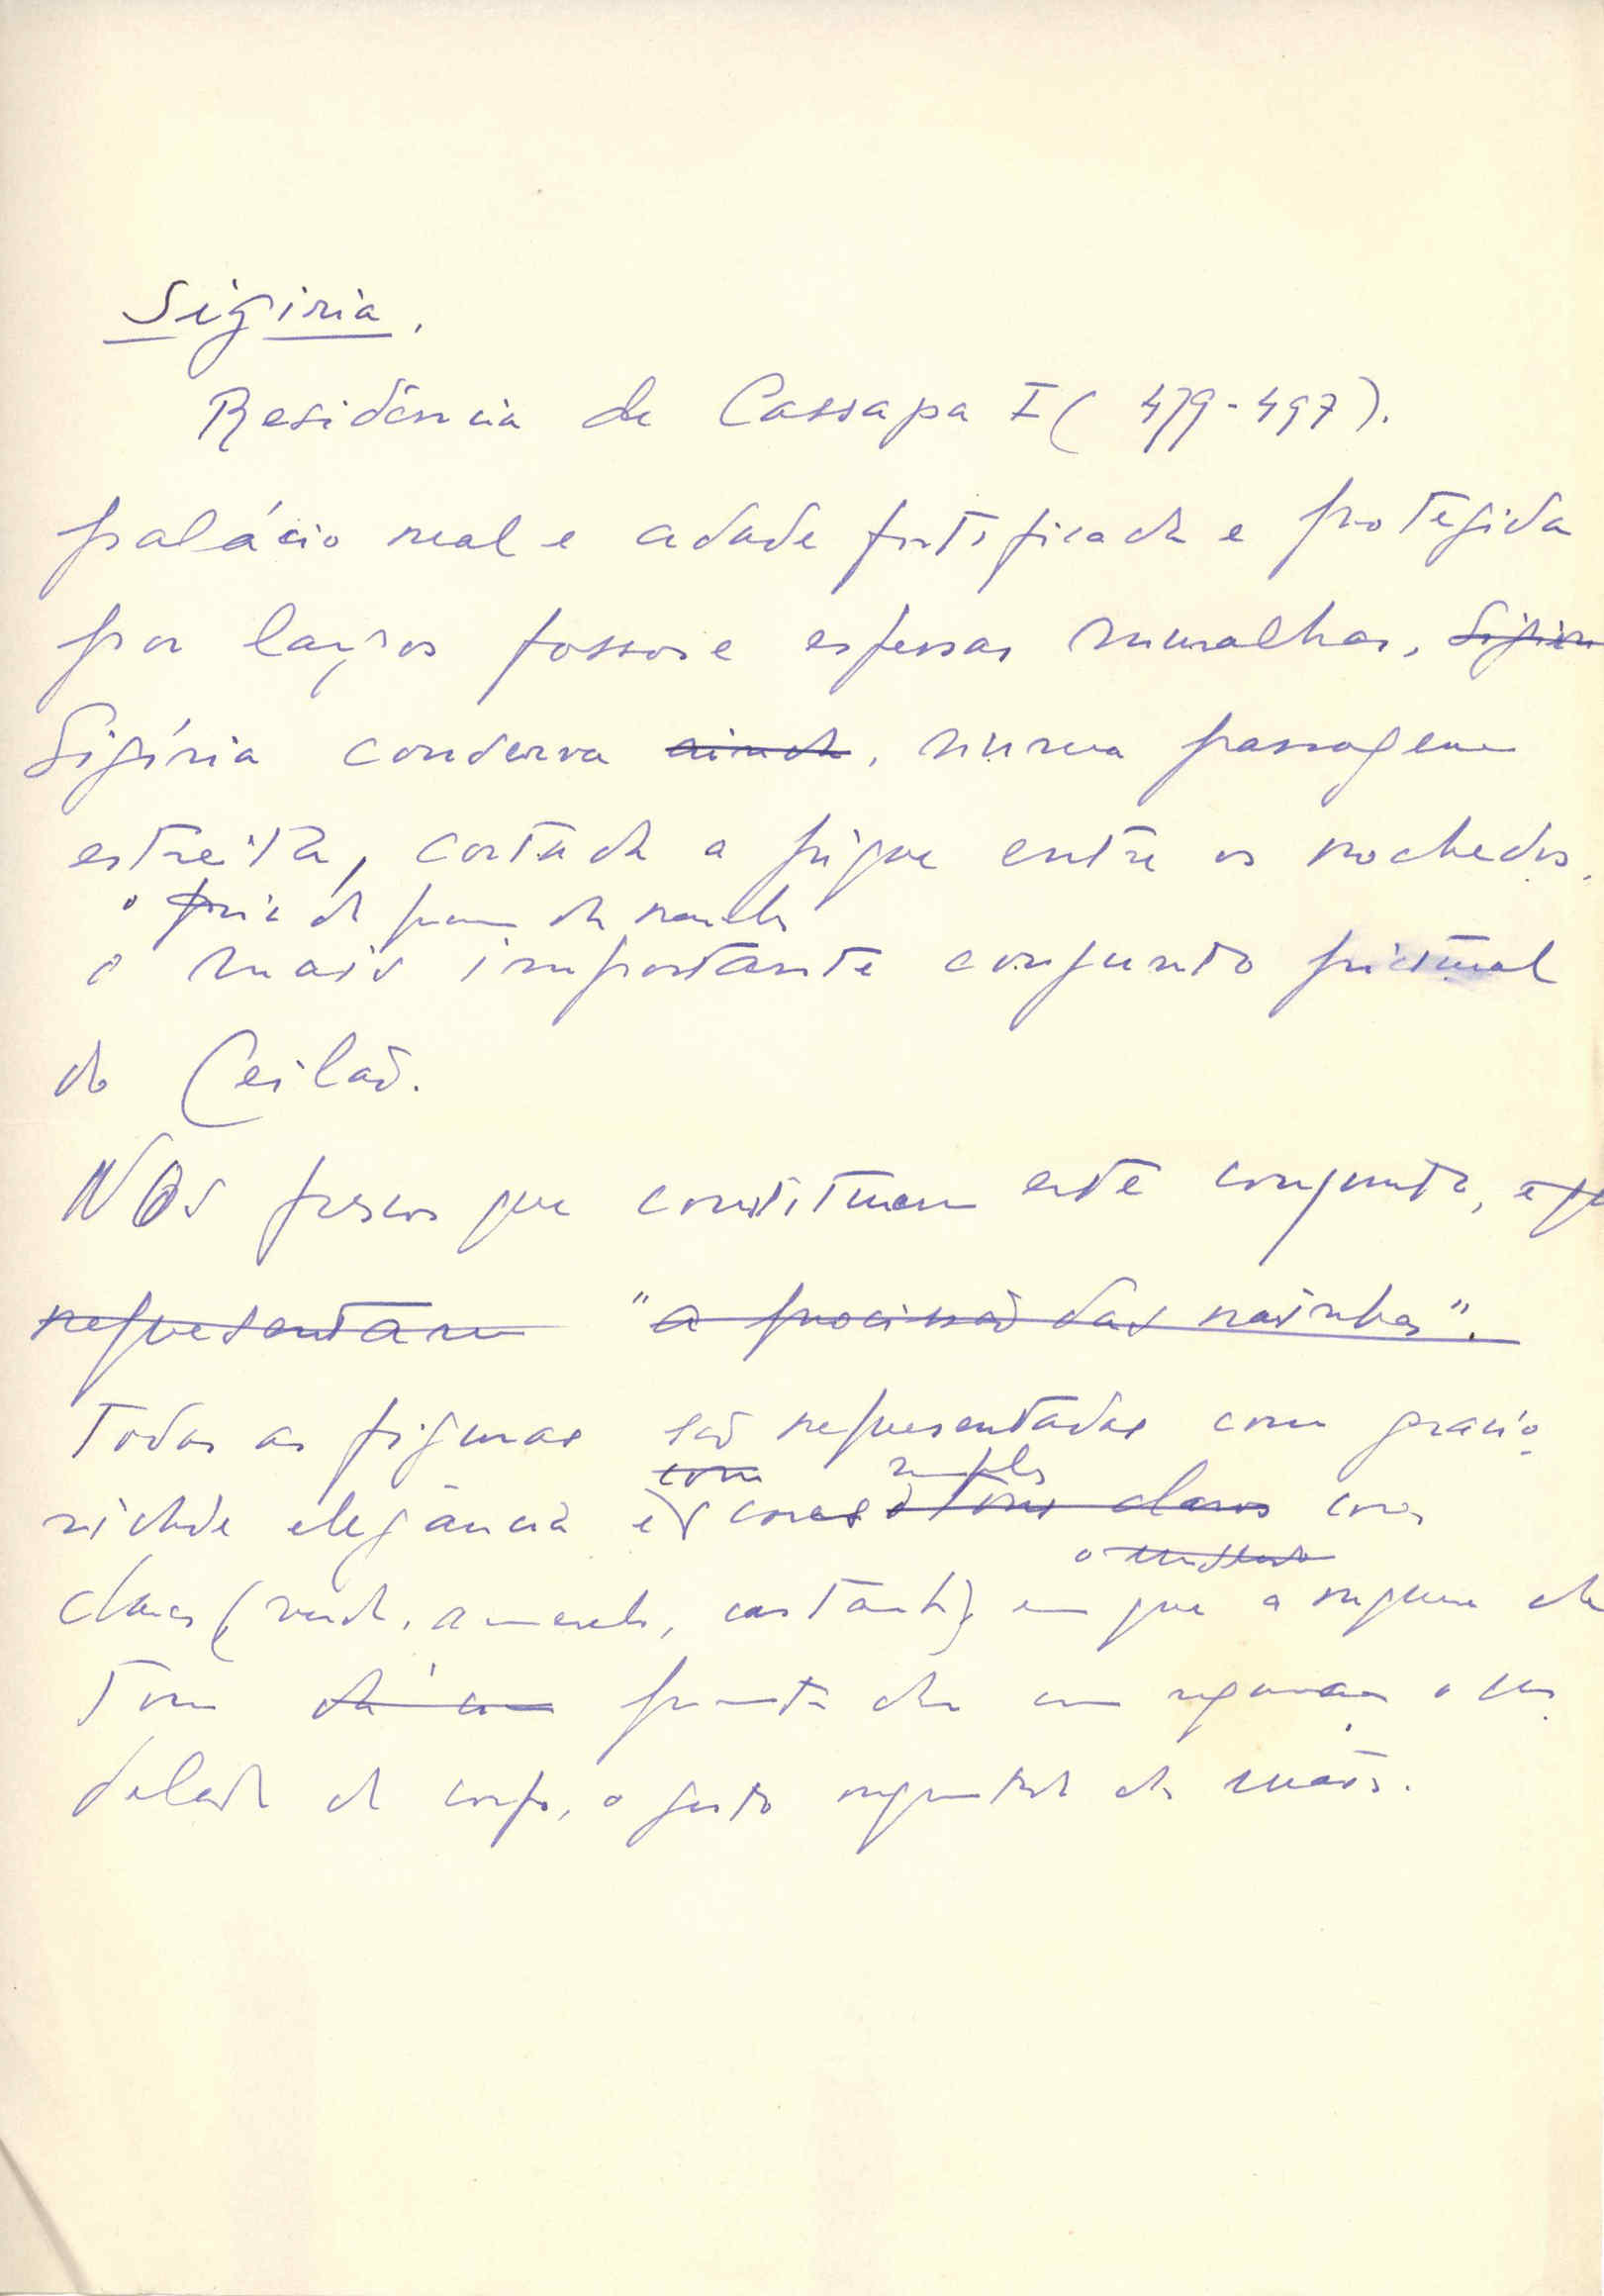 Sigiria.
Residência de Cassapa I (479-497).
palácio real e cidade fortificada e protegida
por largos fossos e espessas muralhas, Sigiri
Sigíria conserva ainda, numa passagem
estreita, cortada a pique entre os rochedos,
o
o mais importante conjunto pictural
do Ceilão.
NOs frescos que constituem este conjunto, e que
representam "a procissão das rainhas".
Todas as figuras são representadas com gracio
com simples
sidade elegância e cores e tons claros cores
o
claras (verde, amarelo, castanho) em que a
Tom dá um
delado do corpo, o gesto das mãos.